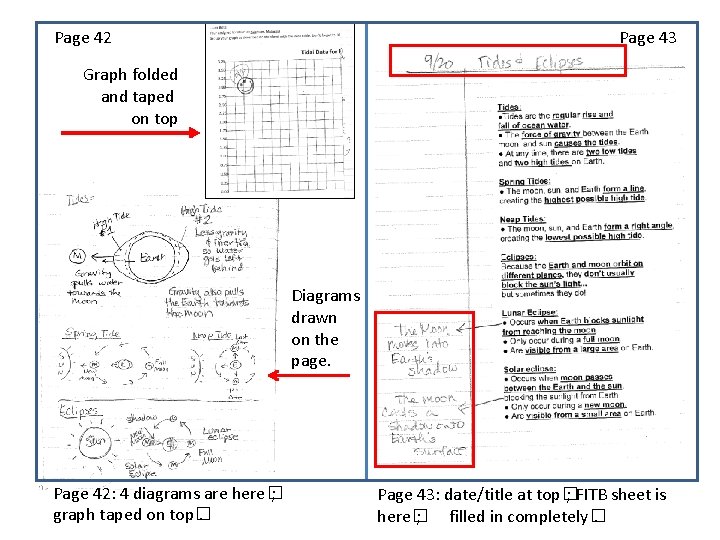 Page 42
Graph folded
and taped
on top
Tidal Data for
Tides:
High Tide
#1
High Tide
#2
Less gravity
& inertia,
so water
gets left
behind
M
Earth
Gravity
pulls water
towards the
Moon
Gravity also pulls
the Earth towards
the moon
Diagrams
drawn
on the
page.
Spring Tide
Neap Tide
S
U
N
Full
moon
Eclipses
Shadow
Sun
Lunar
Eclipse
Full
Moon
Solar
Eclipse
Page 42: 4 diagrams are here ;
graph taped on top .
Page 43
9/20 Tides & Eclipses
Tides:
● Tides are the regular rise and
fall of ocean water.
● The force of gravity between the Earth,
moon, and sun causes the tides.
● At any time, there are two low tides
and two high tides on Earth.
Spring Tides:
● The moon, sun, and Earth form a line,
creating the highest possible high tide.
Neap Tides:
● The moon, sun, and Earth form a right angle,
creating the lowest possible high tide.
Eclipses:
Because the Earth and moon orbit on
different planes, they don't usually
block the sun's light...
but sometimes they do!
Lunar Eclipse:
● Occurs when Earth blocks sunlight
from reaching the moon
● Only occur during a full moon
● Are visible from a large area on Earth.
The Moon
moves into
Earth's
shadow
Solar eclipse:
● Occurs when moon passes
between the Earth and the sun,
blocking the sunlight from Earth.
● Only occur during a new moon.
● Are visible from a small area on Earth.
The moon
casts a
shadow onto
Earth's
surface
Page 43: date/title at top ; FITB sheet is
here ; filled in completely .